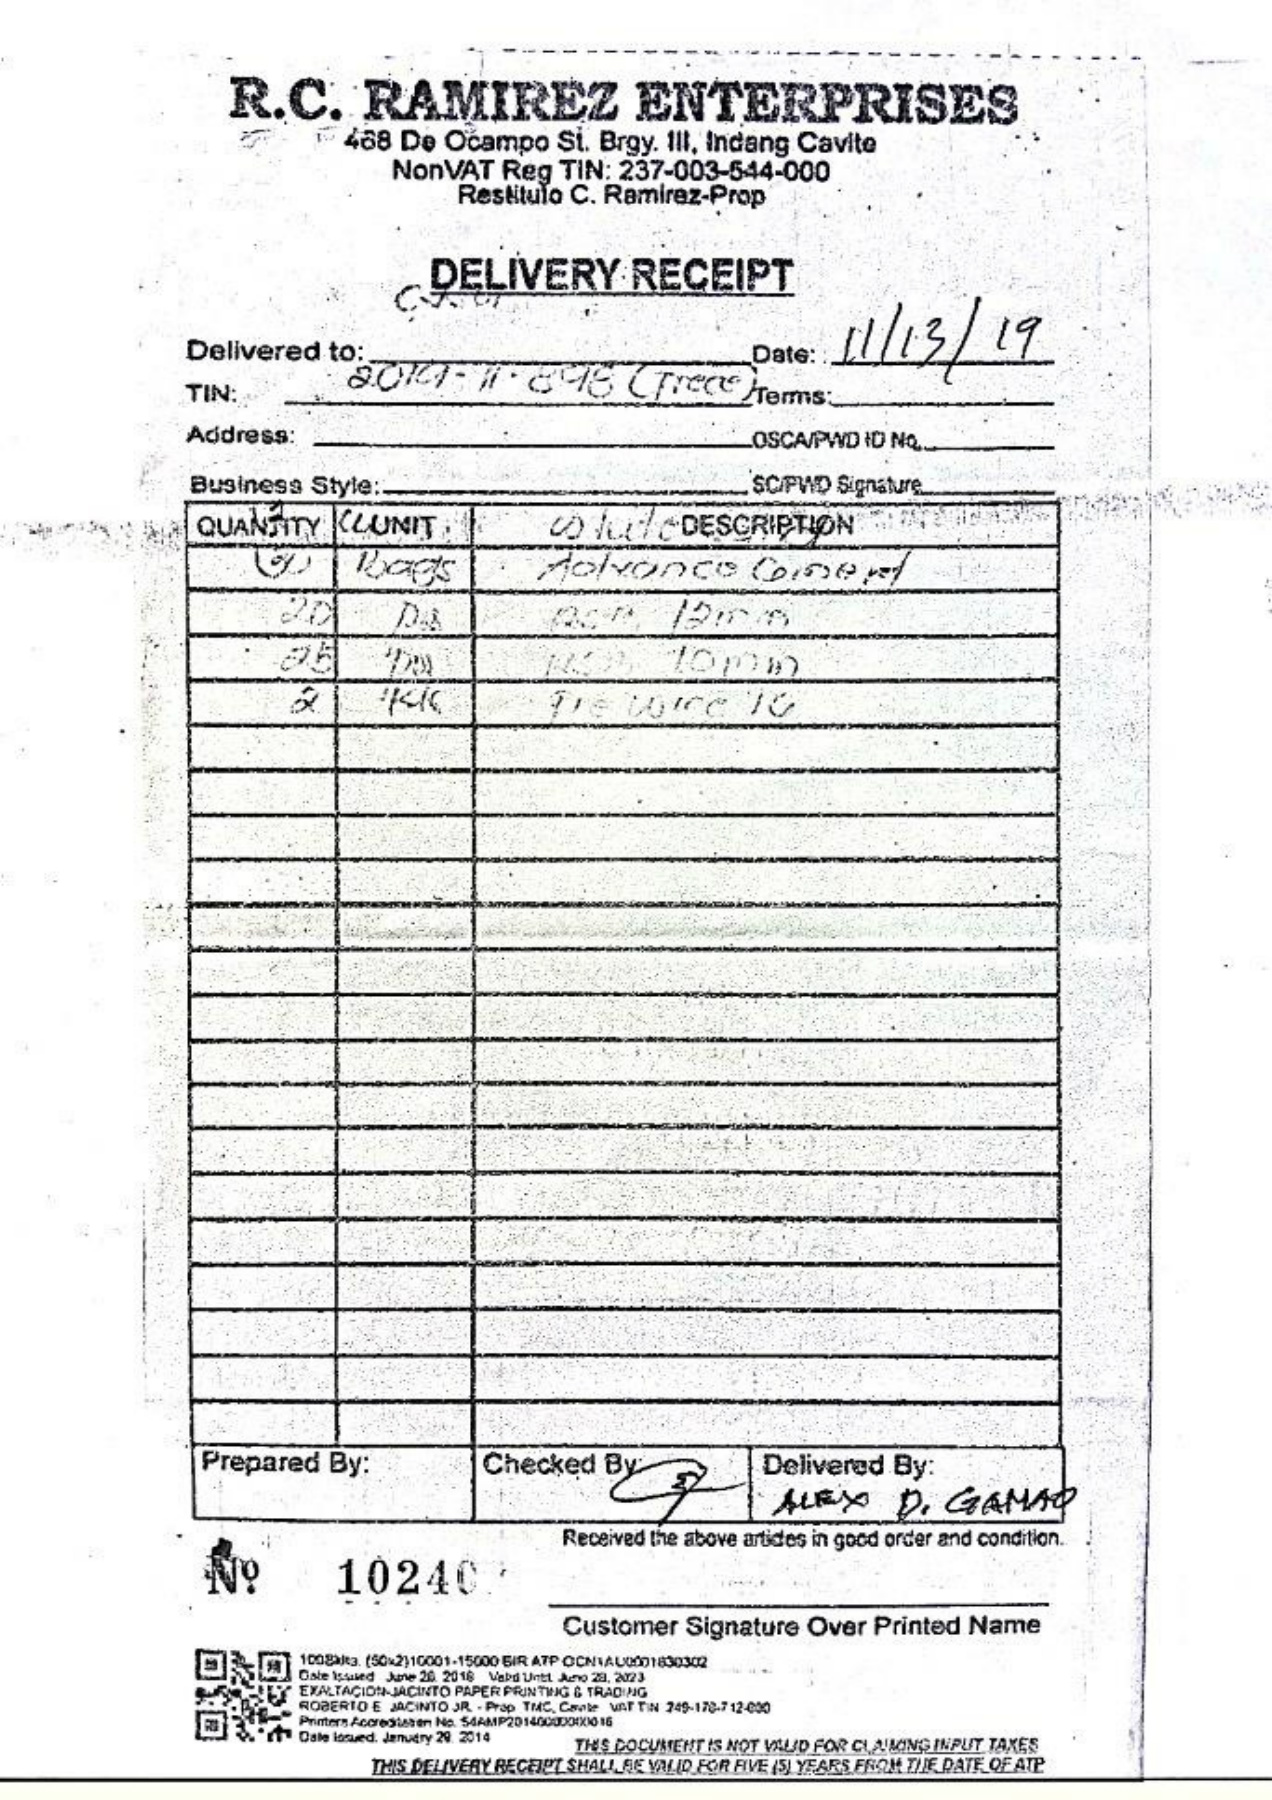 R.C. RAMIREZ ENTERPRISES
468 De Ocampo St. Brgy. III, Indang Cavite
NonVAT Reg TIN: 237-003-544-000
Restituto C. Ramirez-Prop
DELIVERY RECEIPT
Delivered to: Date: 11/13/19
TIN: 2019-11-898 (Trece) Terms:
Address: OSCA/PWD ID No.
Business Style: SC/PWD Signature
QUANTITY UNIT DESCRIPTION
Bags Advance Cement
20 12mm
25 10mm
2 Tie Wire 16
Prepared By: Checked By: Delivered By:
ALEX D. GAMAO
Received the above articles in good order and condition.
No 10240
Customer Signature Over Printed Name
100Bklts. (50x2)10001-15000 BIR ATP OCN1AU0001830302
Date Issued June 28, 2018 Valid Until June 28, 2023
EXALTACION-JACINTO PAPER PRINTING & TRADING
ROBERTO E. JACINTO JR. - Prop TMC, Cavite VAT TIN 249-178-712-000
Printers Accreditation No. 54AMP20140000000016
Date Issued, January 29, 2014
THIS DOCUMENT IS NOT VALID FOR CLAIMING INPUT TAXES
THIS DELIVERY RECEIPT SHALL BE VALID FOR FIVE (5) YEARS FROM THE DATE OF ATP